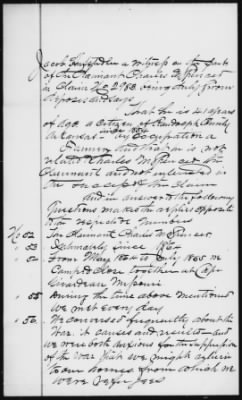 Jacob a witness on the part
of the Claimant Charles W Spencer
in Claim No 2983 being duly sworn
deposes and says
That he is 41 years
of age a citizen of Randolph County
Arkansas by occupation a
Farmer and that he is not
related Charles W Spencer the
Claimant and not interested in
the success of the Claim
And in answer to the following
Questions makes the replies opposite
the respective numbers
No 52 The Claimant Charles W Spencer
" 53 Intimately since
" 54 From May 1864 to July 1865 in
Camp &c close together at Cape
Girardeau Missouri
" 55 During the time above mentioned
we met every day
" 56 We conversed frequently about the
War it causes and results and
we were both anxious for the suppression
of the War that we might return
to our homes from which we
were refugees